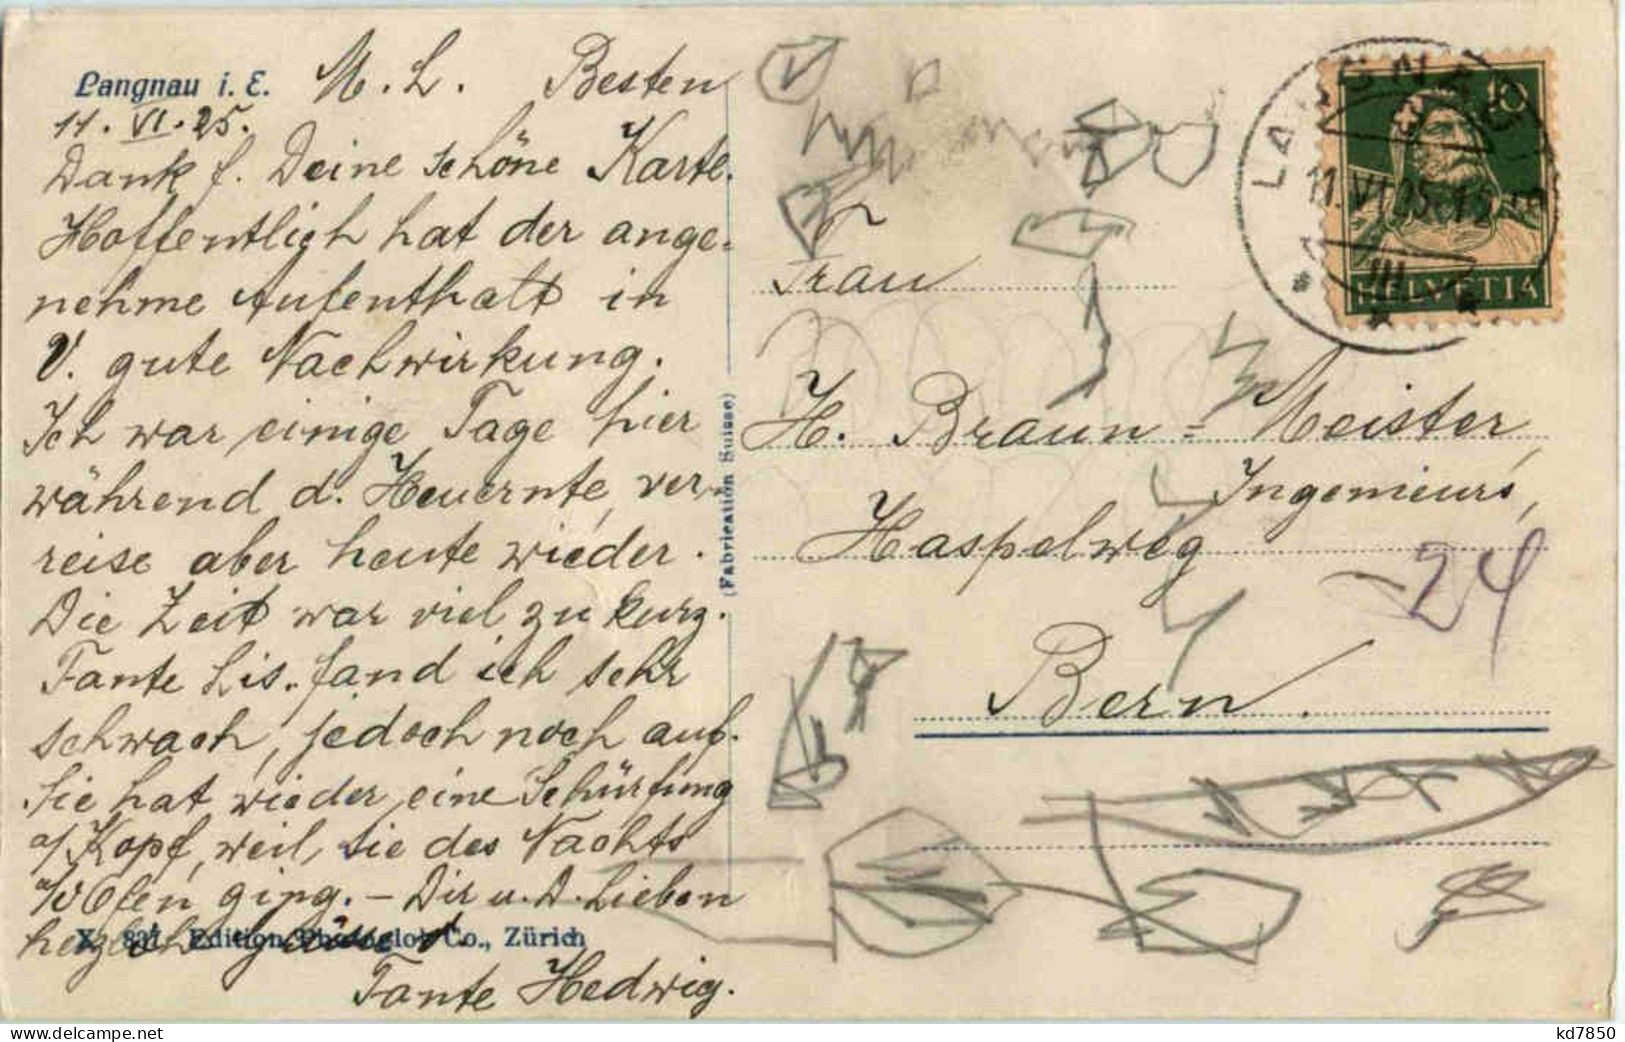 Langnau i. E. M. L. Besten
11. VI. 25.
Dank f. Deine schöne Karte.
Hoffentlich hat der ange-
nehme Aufenthalt in
V. gute Nachwirkung.
Ich war einige Tage hier
während d. Heuernte, ver-
reise aber heute wieder.
Die Zeit war viel zu kurz.
Tante Lis. fand ich sehr
schwach, jedoch noch auf.
Sie hat wieder eine Schürfung
a/ Kopf, weil sie des Nachts
a/ Ofen ging. – Dir u. D. Lieben
herzlich grüsst
X 831 Edition Photoglob Co., Zürich
Tante Hedwig.
(Fabrication Suisse)
LANGNAU
11.VI.25. 12
III
10
HELVETIA
Frau
H. Braun = Meister,
Ingenieurs,
Haspelweg
24
Bern.
kd7850